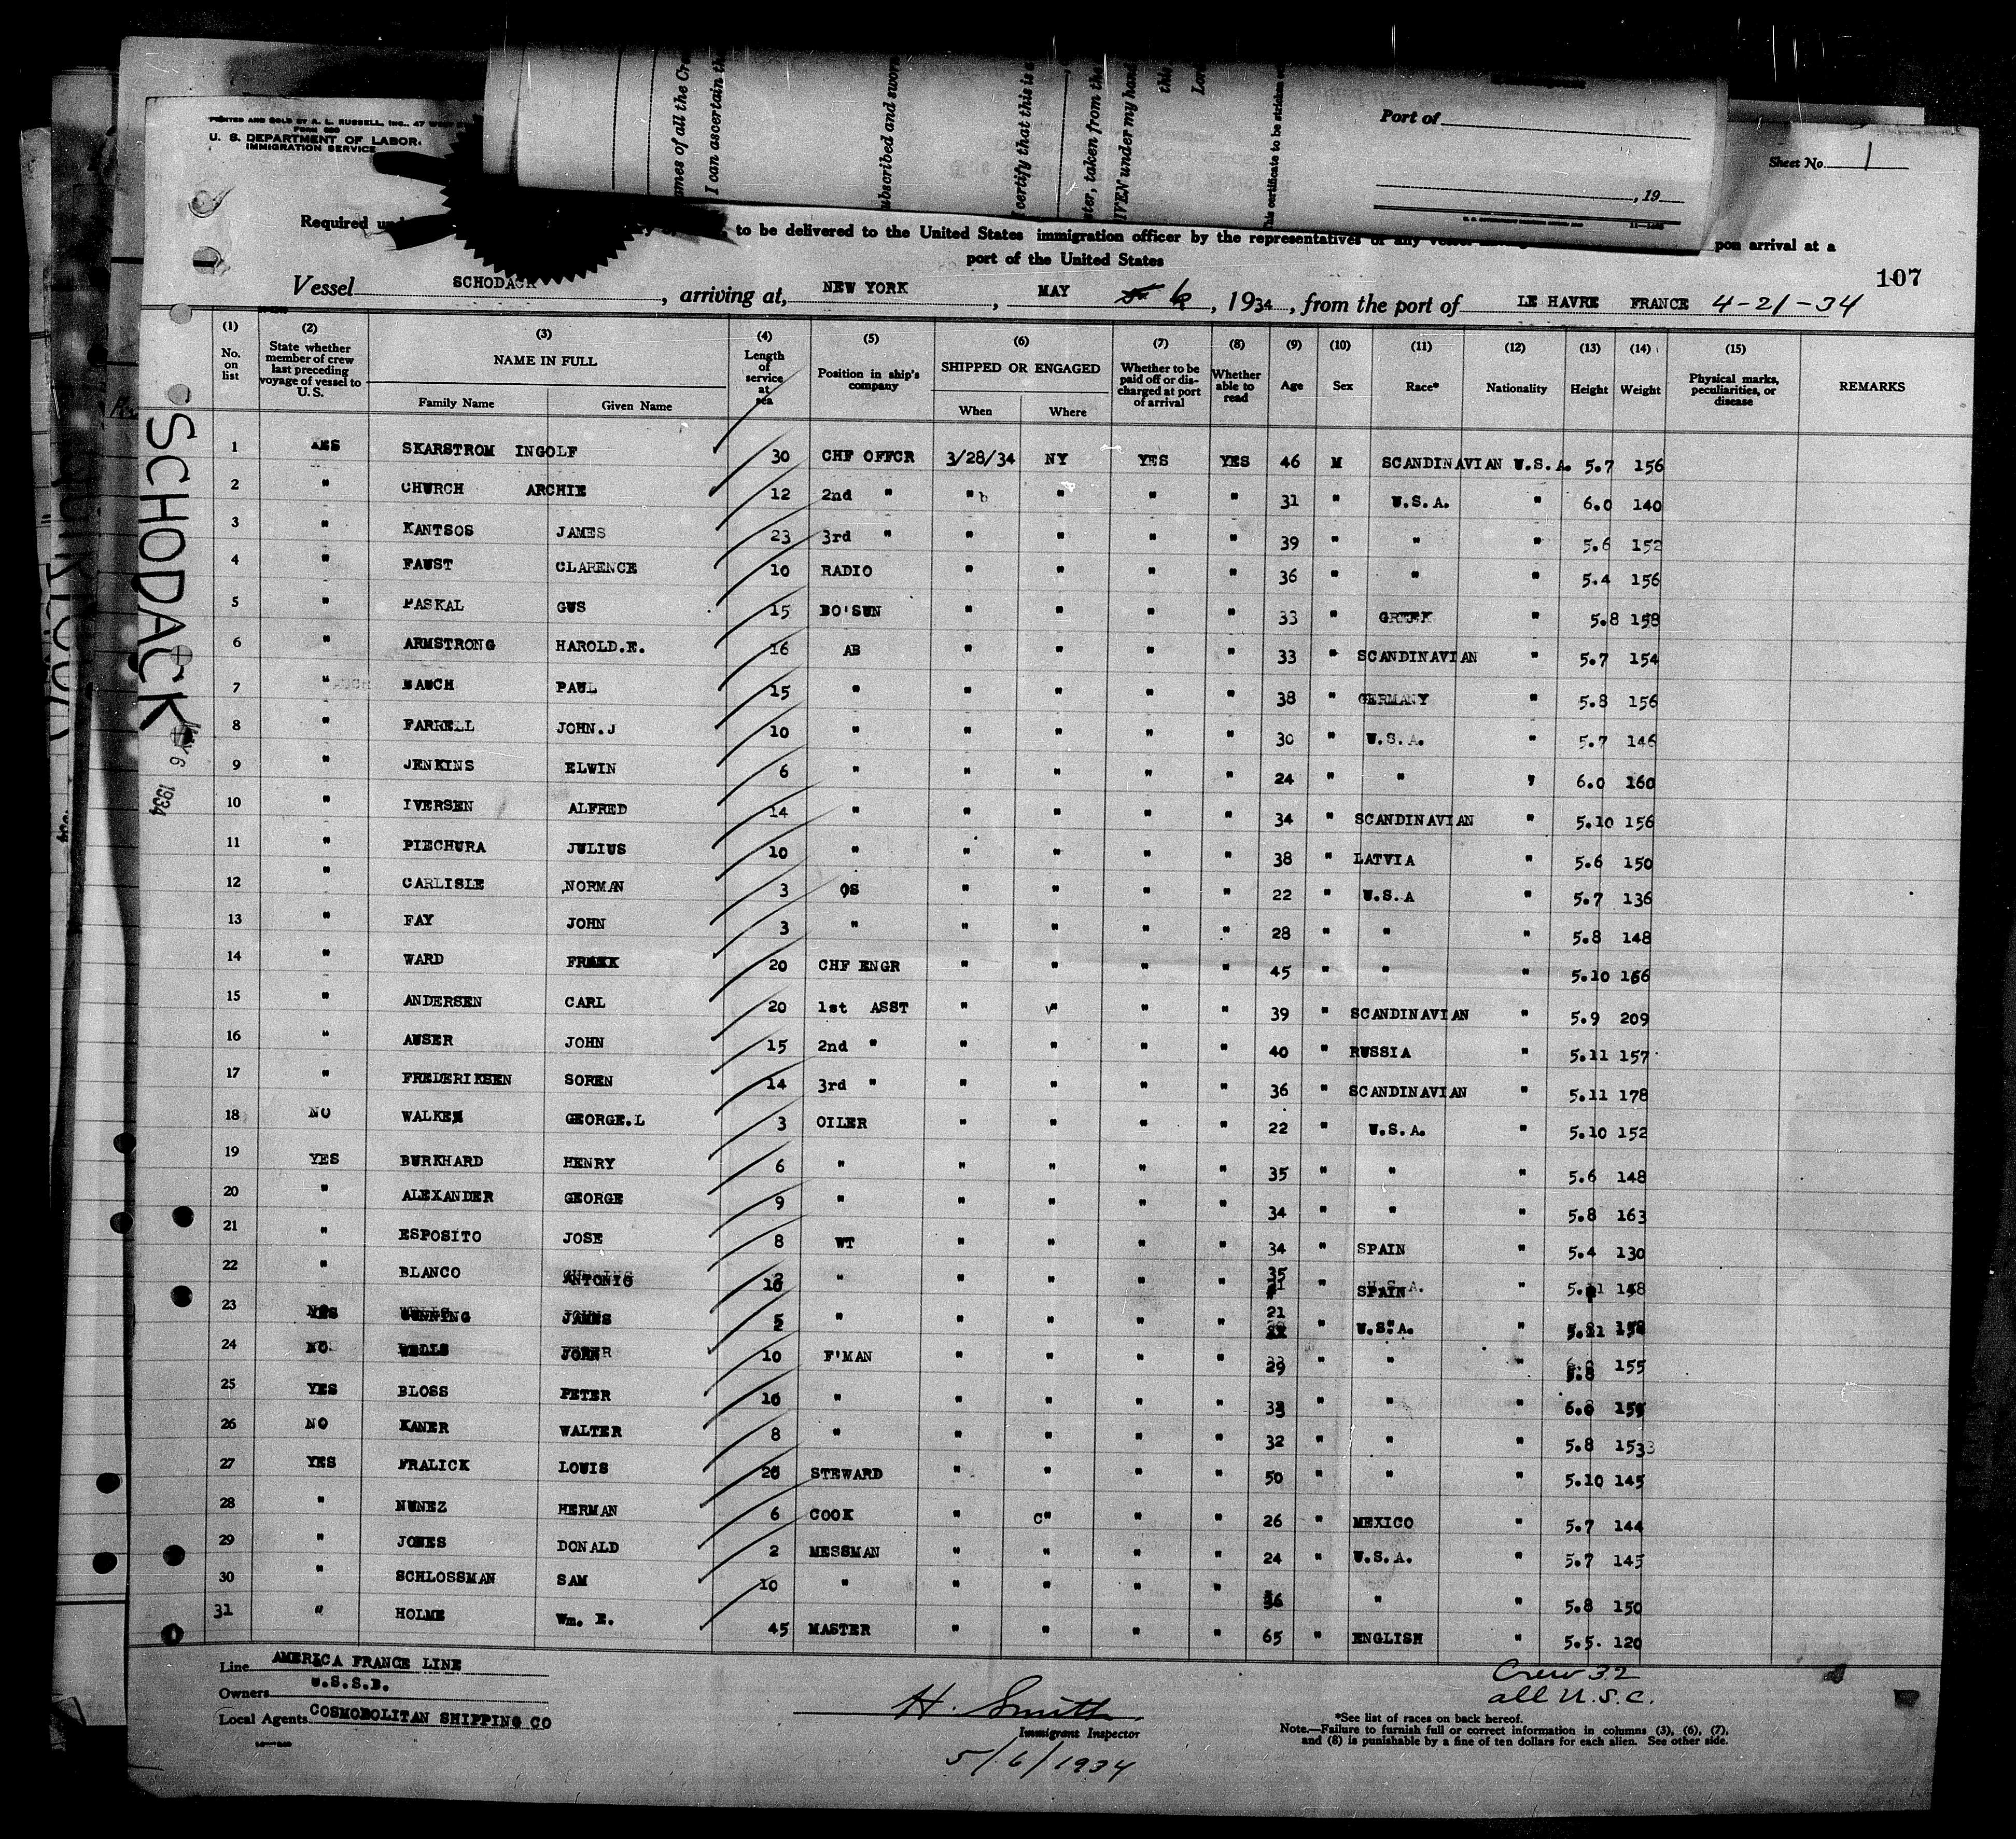 PRINTED AND SOLD BY A. L. RUSSELL, INC., 47
U. S. DEPARTMENT OF LABOR.
IMMIGRATION SERVICE
ames of all the Cre
I can ascertain th
ubscribed and sworn
I certify that this is a
ster, taken from the
IVEN under my hand
this
his certificate to be stricken
Port of
, 19
Sheet No. 1
Required un to be delivered to the United States immigration officer by the representatives of any vessel pon arrival at a
port of the United States
107
Vessel SCHODACK, arriving at, NEW YORK, MAY 6, 1934, from the port of LE HAVRE FRANCE 4-21-34
(1) No. on list
(2) State whether member of crew last preceding voyage of vessel to U.S.
(3) NAME IN FULL Family Name Given Name
(4) Length of service at sea
(5) Position in ship's company
(6) SHIPPED OR ENGAGED When Where
(7) Whether to be paid off or discharged at port of arrival
(8) Whether able to read
(9) Age
(10) Sex
(11) Race*
(12) Nationality
(13) Height
(14) Weight
(15) Physical marks, peculiarities, or disease
REMARKS
1 YES SKARSTROM INGOLF 30 CHF OFFCR 3/28/34 NY YES YES 46 M SCANDINAVIAN U.S.A. 5.7 156
2 " CHURCH ARCHIE 12 2nd " " " " " 31 " U.S.A. " 6.0 140
3 " KANTSOS JAMES 23 3rd " " " " " 39 " " " 5.6 152
4 " FAUST CLARENCE 10 RADIO " " " " 36 " " " 5.4 156
5 " PASKAL GUS 15 BO'SUN " " " " 33 " GREEK " 5.8 158
6 " ARMSTRONG HAROLD.E. 16 AB " " " " 33 " SCANDINAVIAN " 5.7 154
7 " BAUCH PAUL 15 " " " " " 38 " GERMANY " 5.8 156
8 " FARRELL JOHN.J 10 " " " " " 30 " U.S.A. " 5.7 146
9 " JENKINS ELWIN 6 " " " " " 24 " " " 6.0 160
10 " IVERSEN ALFRED 14 " " " " " 34 " SCANDINAVIAN " 5.10 156
11 " PIECHURA JULIUS 10 " " " " " 38 " LATVIA " 5.6 150
12 " CARLISLE NORMAN 3 OS " " " " 22 " U.S.A " 5.7 136
13 " FAY JOHN 3 " " " " " 28 " " " 5.8 148
14 " WARD 20 CHF ENGR " " " " 45 " " " 5.10 166
15 " ANDERSEN CARL 20 1st ASST " " " " 39 " SCANDINAVIAN " 5.9 209
16 " AUSER JOHN 15 2nd " " " " " 40 " RUSSIA " 5.11 157
17 " FREDERIKSEN SOREN 14 3rd " " " " " 36 " SCANDINAVIAN " 5.11 178
18 NO WALKER GEORGE.L 3 OILER " " " " 22 " U.S.A. " 5.10 152
19 YES BURKHARD HENRY 6 " " " " " 35 " " " 5.6 148
20 " ALEXANDER GEORGE 9 " " " " " 34 " " " 5.8 163
21 " ESPOSITO JOSE 8 WT " " " " 34 " SPAIN " 5.4 130
22 " BLANCO ANTONIO 10 " " " " " 35 " SPAIN "
23 YES GUNNING JAMES 5 " " " " " 21 " U.S.A. "
24 NO WELLS JOHN 10 F'MAN " " " " 29 " " " 5.8 155
25 YES BLOSS PETER 10 " " " " " " " "
26 NO KANER WALTER 8 " " " " " 32 " " " 5.8 153
27 YES FRALICK LOUIS 20 STEWARD " " " " 50 " " " 5.10 145
28 " NUNEZ HERMAN 6 COOK " " " " 26 " MEXICO " 5.7 144
29 " JONES DONALD 2 MESSMAN " " " " 24 " U.S.A. " 5.7 145
30 " SCHLOSSMAN SAM 10 " " " " " " " " 5.8 150
31 " HOLME Wm. E. 45 MASTER " " " " 65 " ENGLISH " 5.5. 120
SCHODACK
MAY 6 1934
Line AMERICA FRANCE LINE
Owners U.S.S.B.
Local Agents COSMOPOLITAN SHIPPING CO
H. Smith
Immigrant Inspector
5/6/1934
Crew 32
all U.S.C.
*See list of races on back hereof.
Note.—Failure to furnish full or correct information in columns (3), (6), (7),
and (8) is punishable by a fine of ten dollars for each alien. See other side.